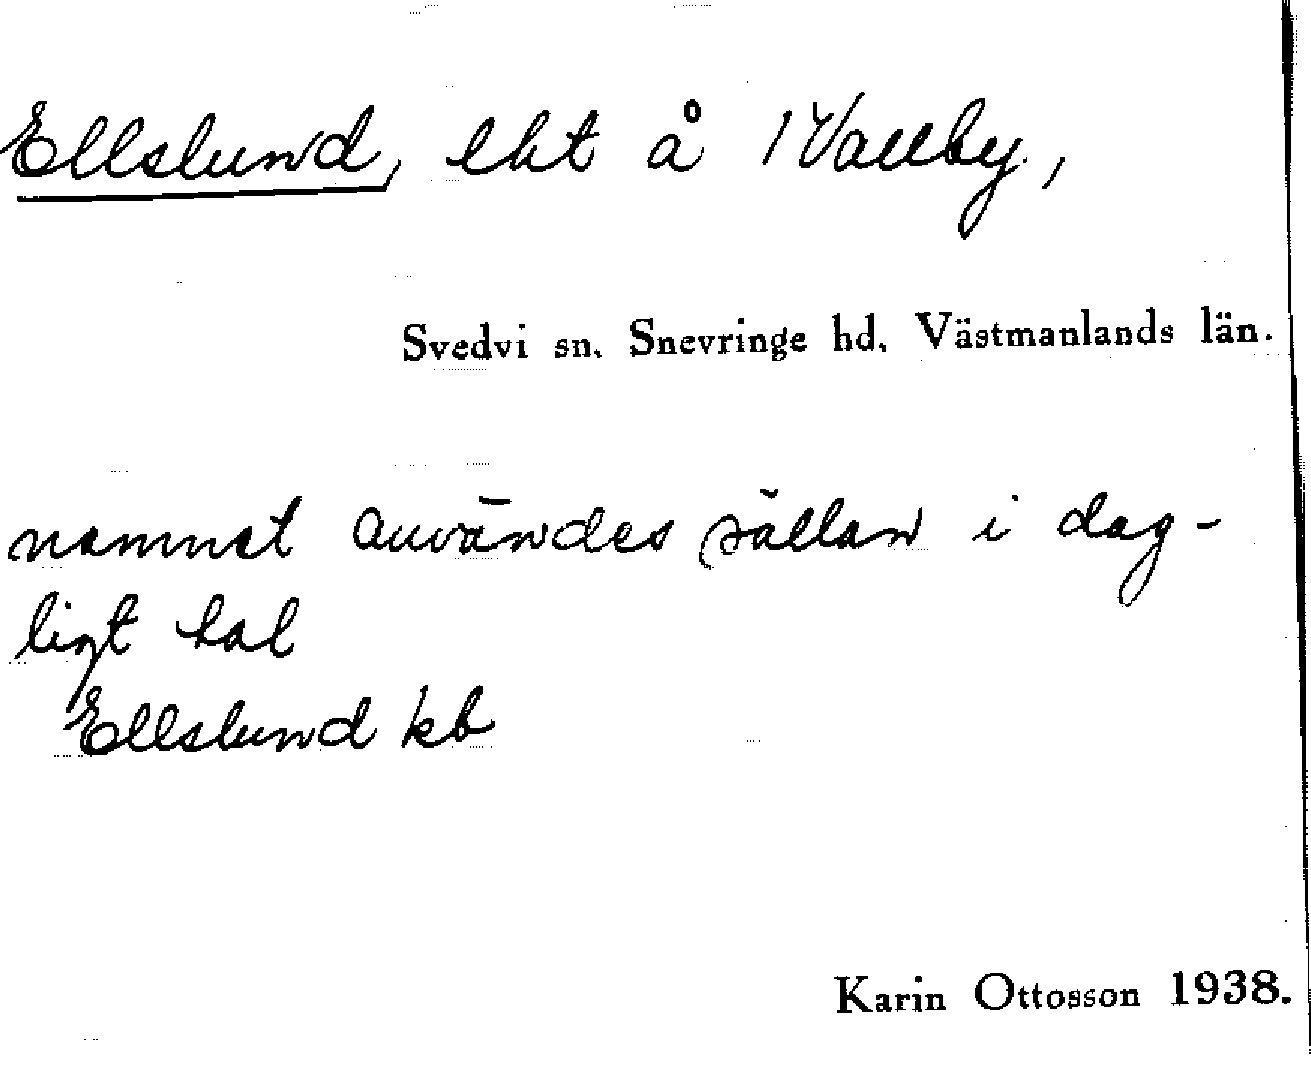 Ellslund, lht å 1 Vallby,
Svedvi sn. Snevringe hd. Västmanlands län.
namnet användes sällan i dag-
ligt tal
Ellslund kb
Karin Ottosson 1938.